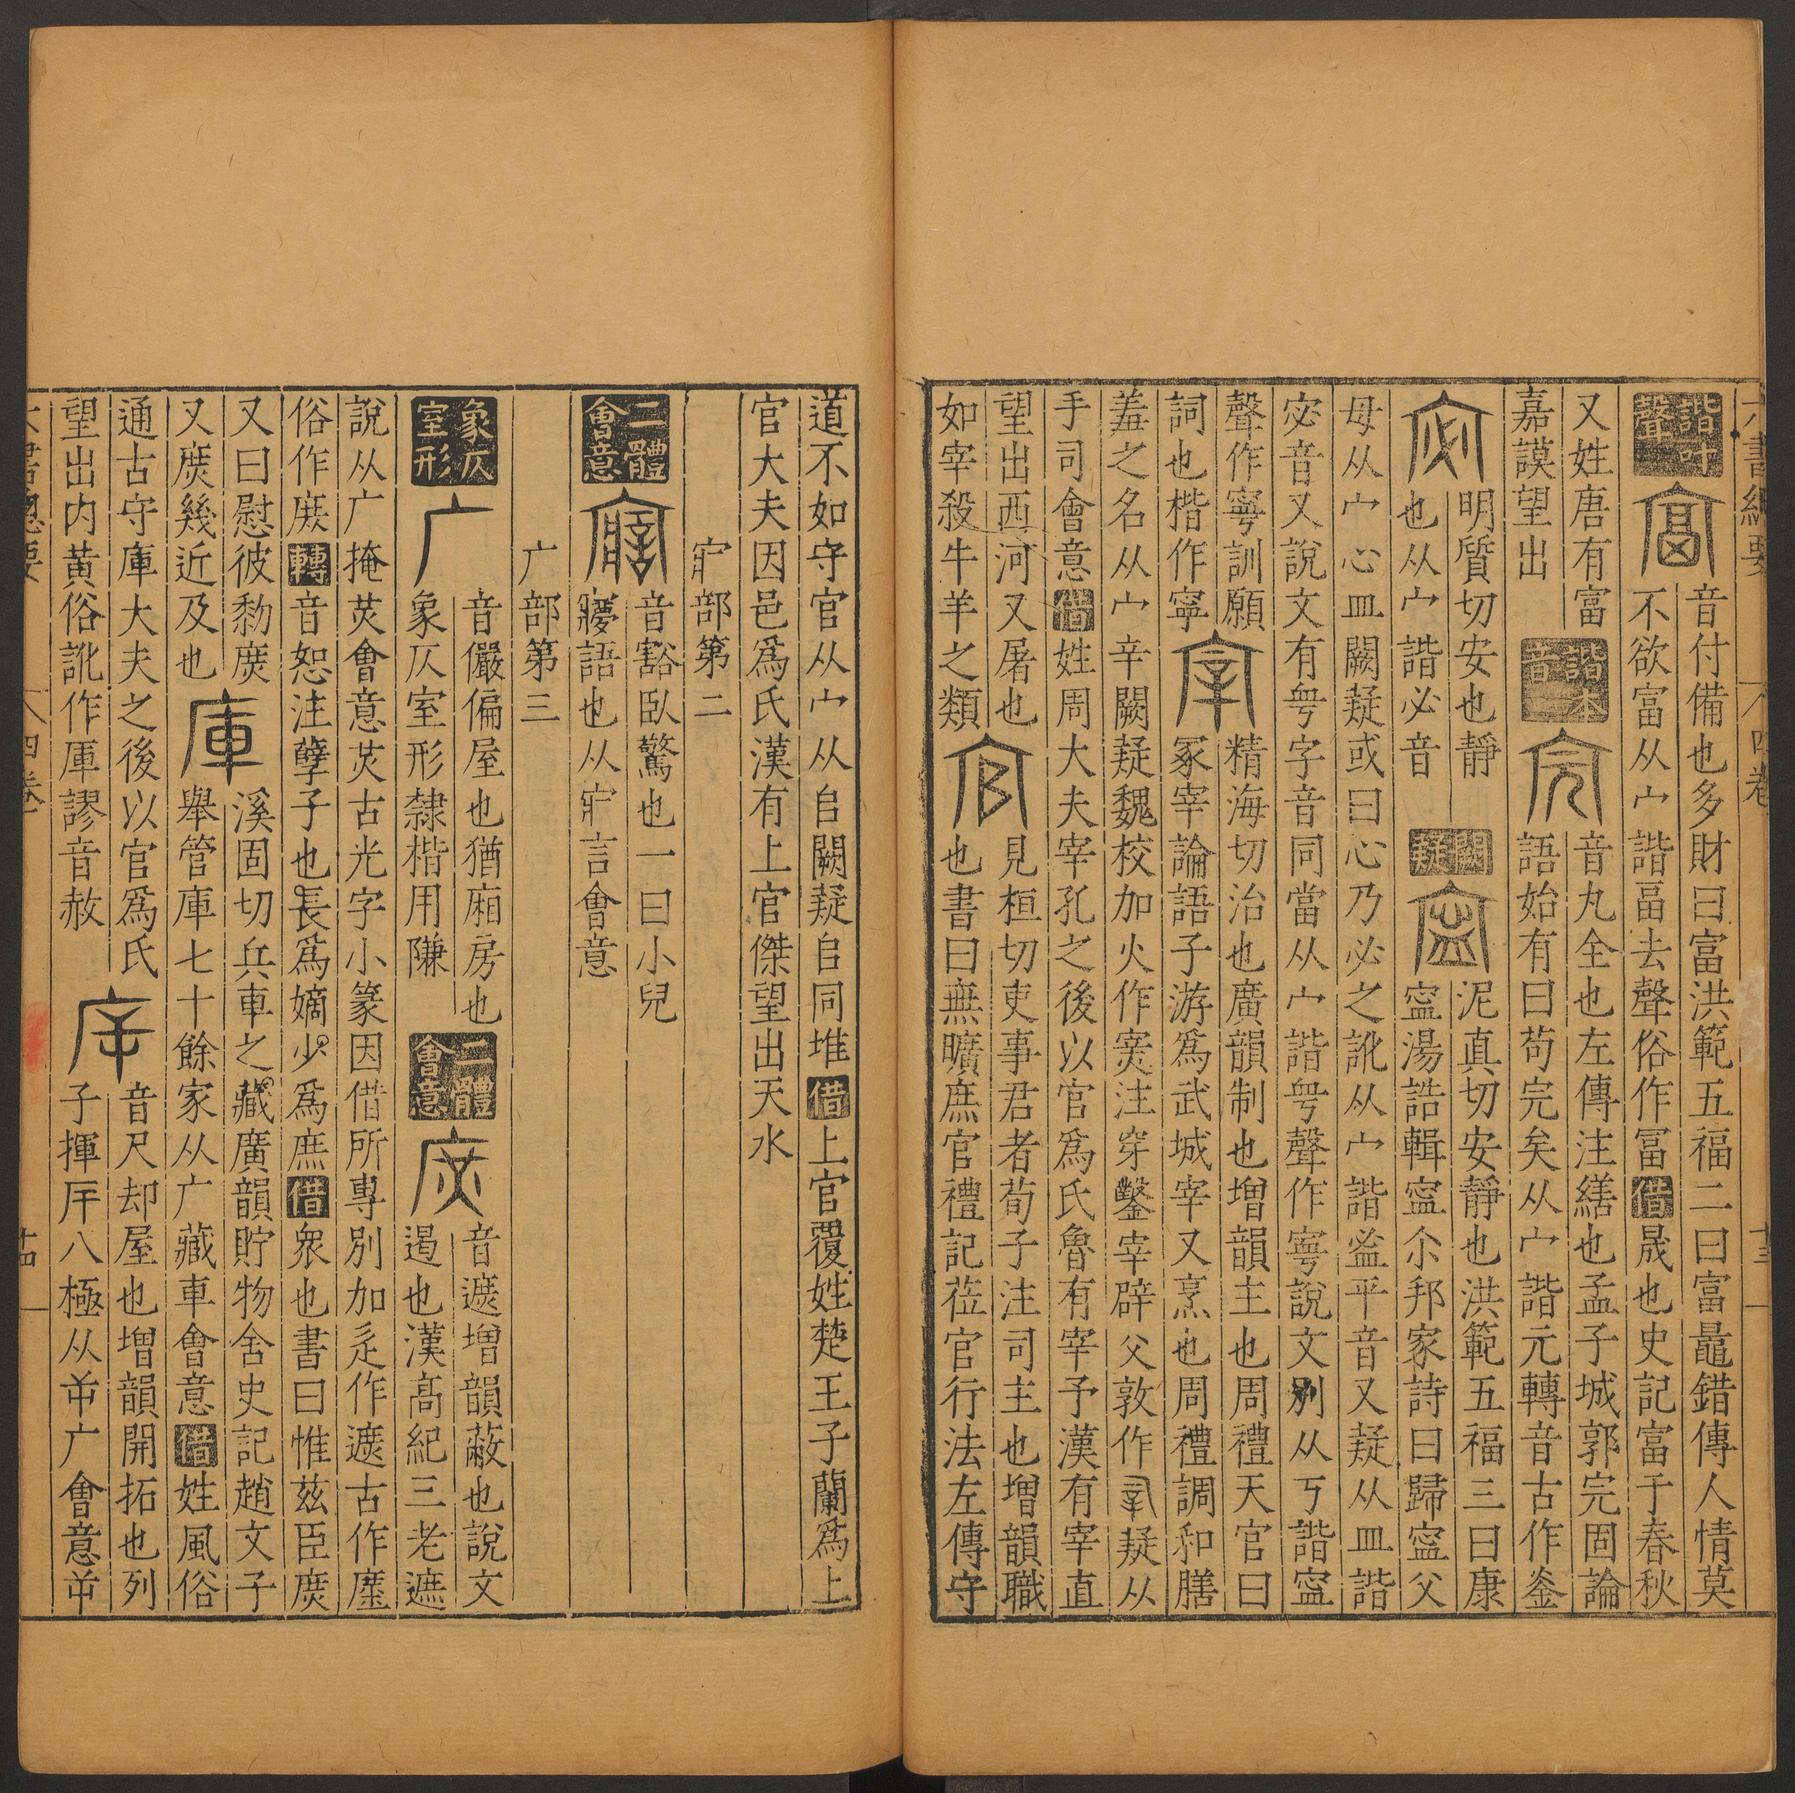 六書總要 四卷 十三
諧叶聲 富 音付備也多財曰富洪範五福二曰富鼂錯傳人情莫
不欲富从宀諧畐去聲俗作冨借晟也史記富于春秋
又姓唐有富
嘉謨望出
諧本音 完 音丸全也左傳注繕也孟子城郭完固論
語始有曰苟完矣从宀諧元轉音古作
宓 明質切安也靜
也从宀諧必音
闕疑 寍 泥真切安靜也洪範五福三曰康
寍湯誥輯寍尒邦家詩曰歸寍父
母从宀心皿闕疑或曰心乃必之訛从宀諧盗平音又疑从皿諧
宓音又說文有甹字音同當从宀諧甹聲作寗說文別从丂諧寍
聲作寧訓願
詞也楷作寧
宰 精海切治也廣韻制也增韻主也周禮天官曰
冢宰論語子游為武城宰又烹也周禮調和膳
羞之名从宀辛闕疑魏校加火作注穿鑿宰辟父敦作疑从
手司會意借姓周大夫宰孔之後以官為氏魯有宰予漢有宰直
望出西河又屠也
如宰殺牛羊之類
官 見桓切吏事君者荀子注司主也增韻職
也書曰無曠庶官禮記莅官行法左傳守
道不如守官从宀从𠂤闕疑𠂤同堆借上官覆姓楚王子蘭為上
官大夫因邑為氏漢有上官傑望出天水
㝱部第二
二體會意 音豁臥驚也一曰小兒
寱語也从言會意
广部第三
象仄室形 广 音儼偏屋也猶廂房也
象仄室形隸楷用隒
二體會意 庶 音遮增韻蔽也說文
遏也漢高紀三老遮
說从广掩炗會意炗古光字小篆因借所專別加辵作遮古作
俗作庶轉音恕注孽子也長為嫡少為庶借眾也書曰惟茲臣庶
又曰慰彼黎庶
又庶幾近及也
庫 溪固切兵車之藏廣韻貯物舍史記趙文子
舉管庫七十餘家从广藏車會意借姓風俗
通古守庫大夫之後以官為氏
望出內黃俗訛作厙謬音赦
㡿 音尺却屋也增韻開拓也列
子揮斥八極从屰广會意屰
六書總要 四卷 十四